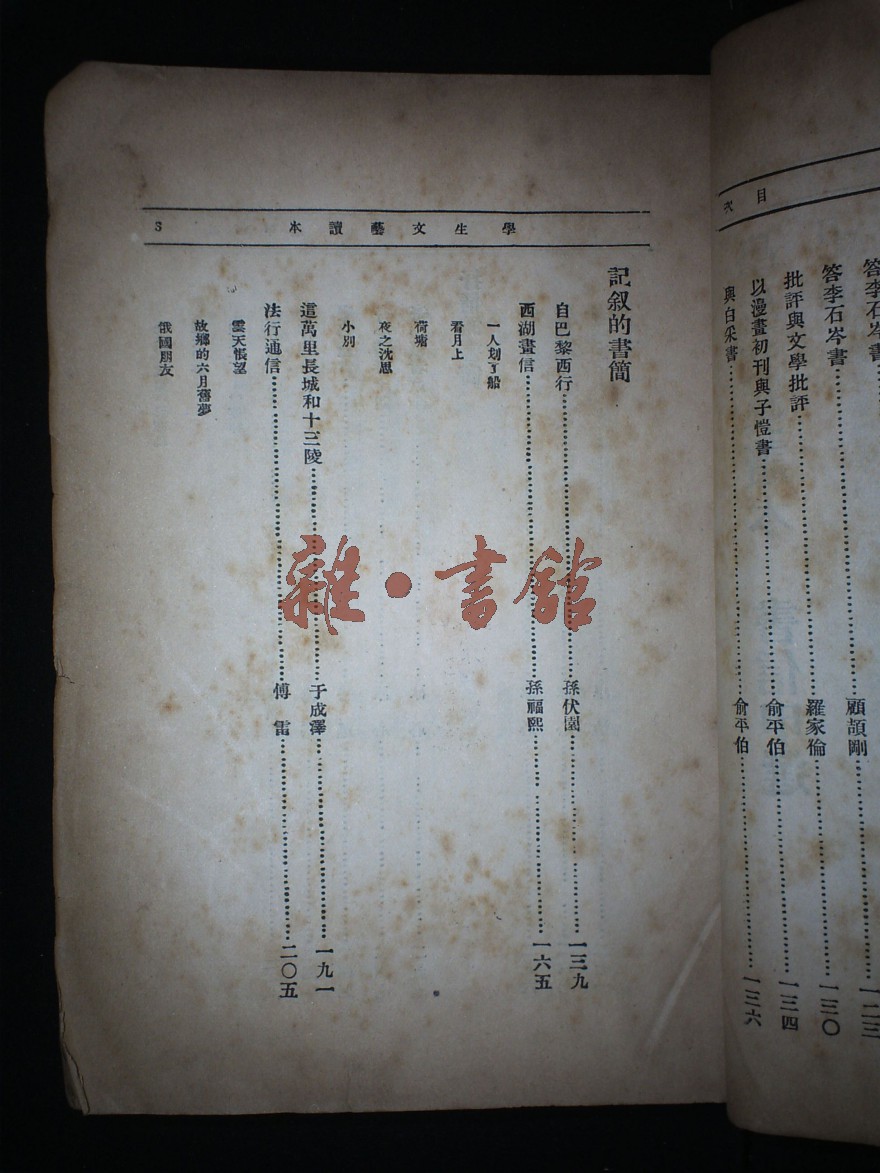 次目
答李石岑書
顧頡剛
一二三
答李石岑書
羅家倫
一三〇
批評與文學批評
俞平伯
一三四
以漫畫初刊與子愷書
俞平伯
一三六
與白采書
3
本讀藝文生學
記叙的書簡
自巴黎西行
孫伏園
一三九
西湖畫信
孫福熙
一六五
一人划了船
看月上
荷塘
夜之沈思
小別
這萬里長城和十三陵
于成澤
一九一
法行通信
傅雷
二〇五
雲天悵望
故鄉的六月舊夢
俄國朋友
雜·書館